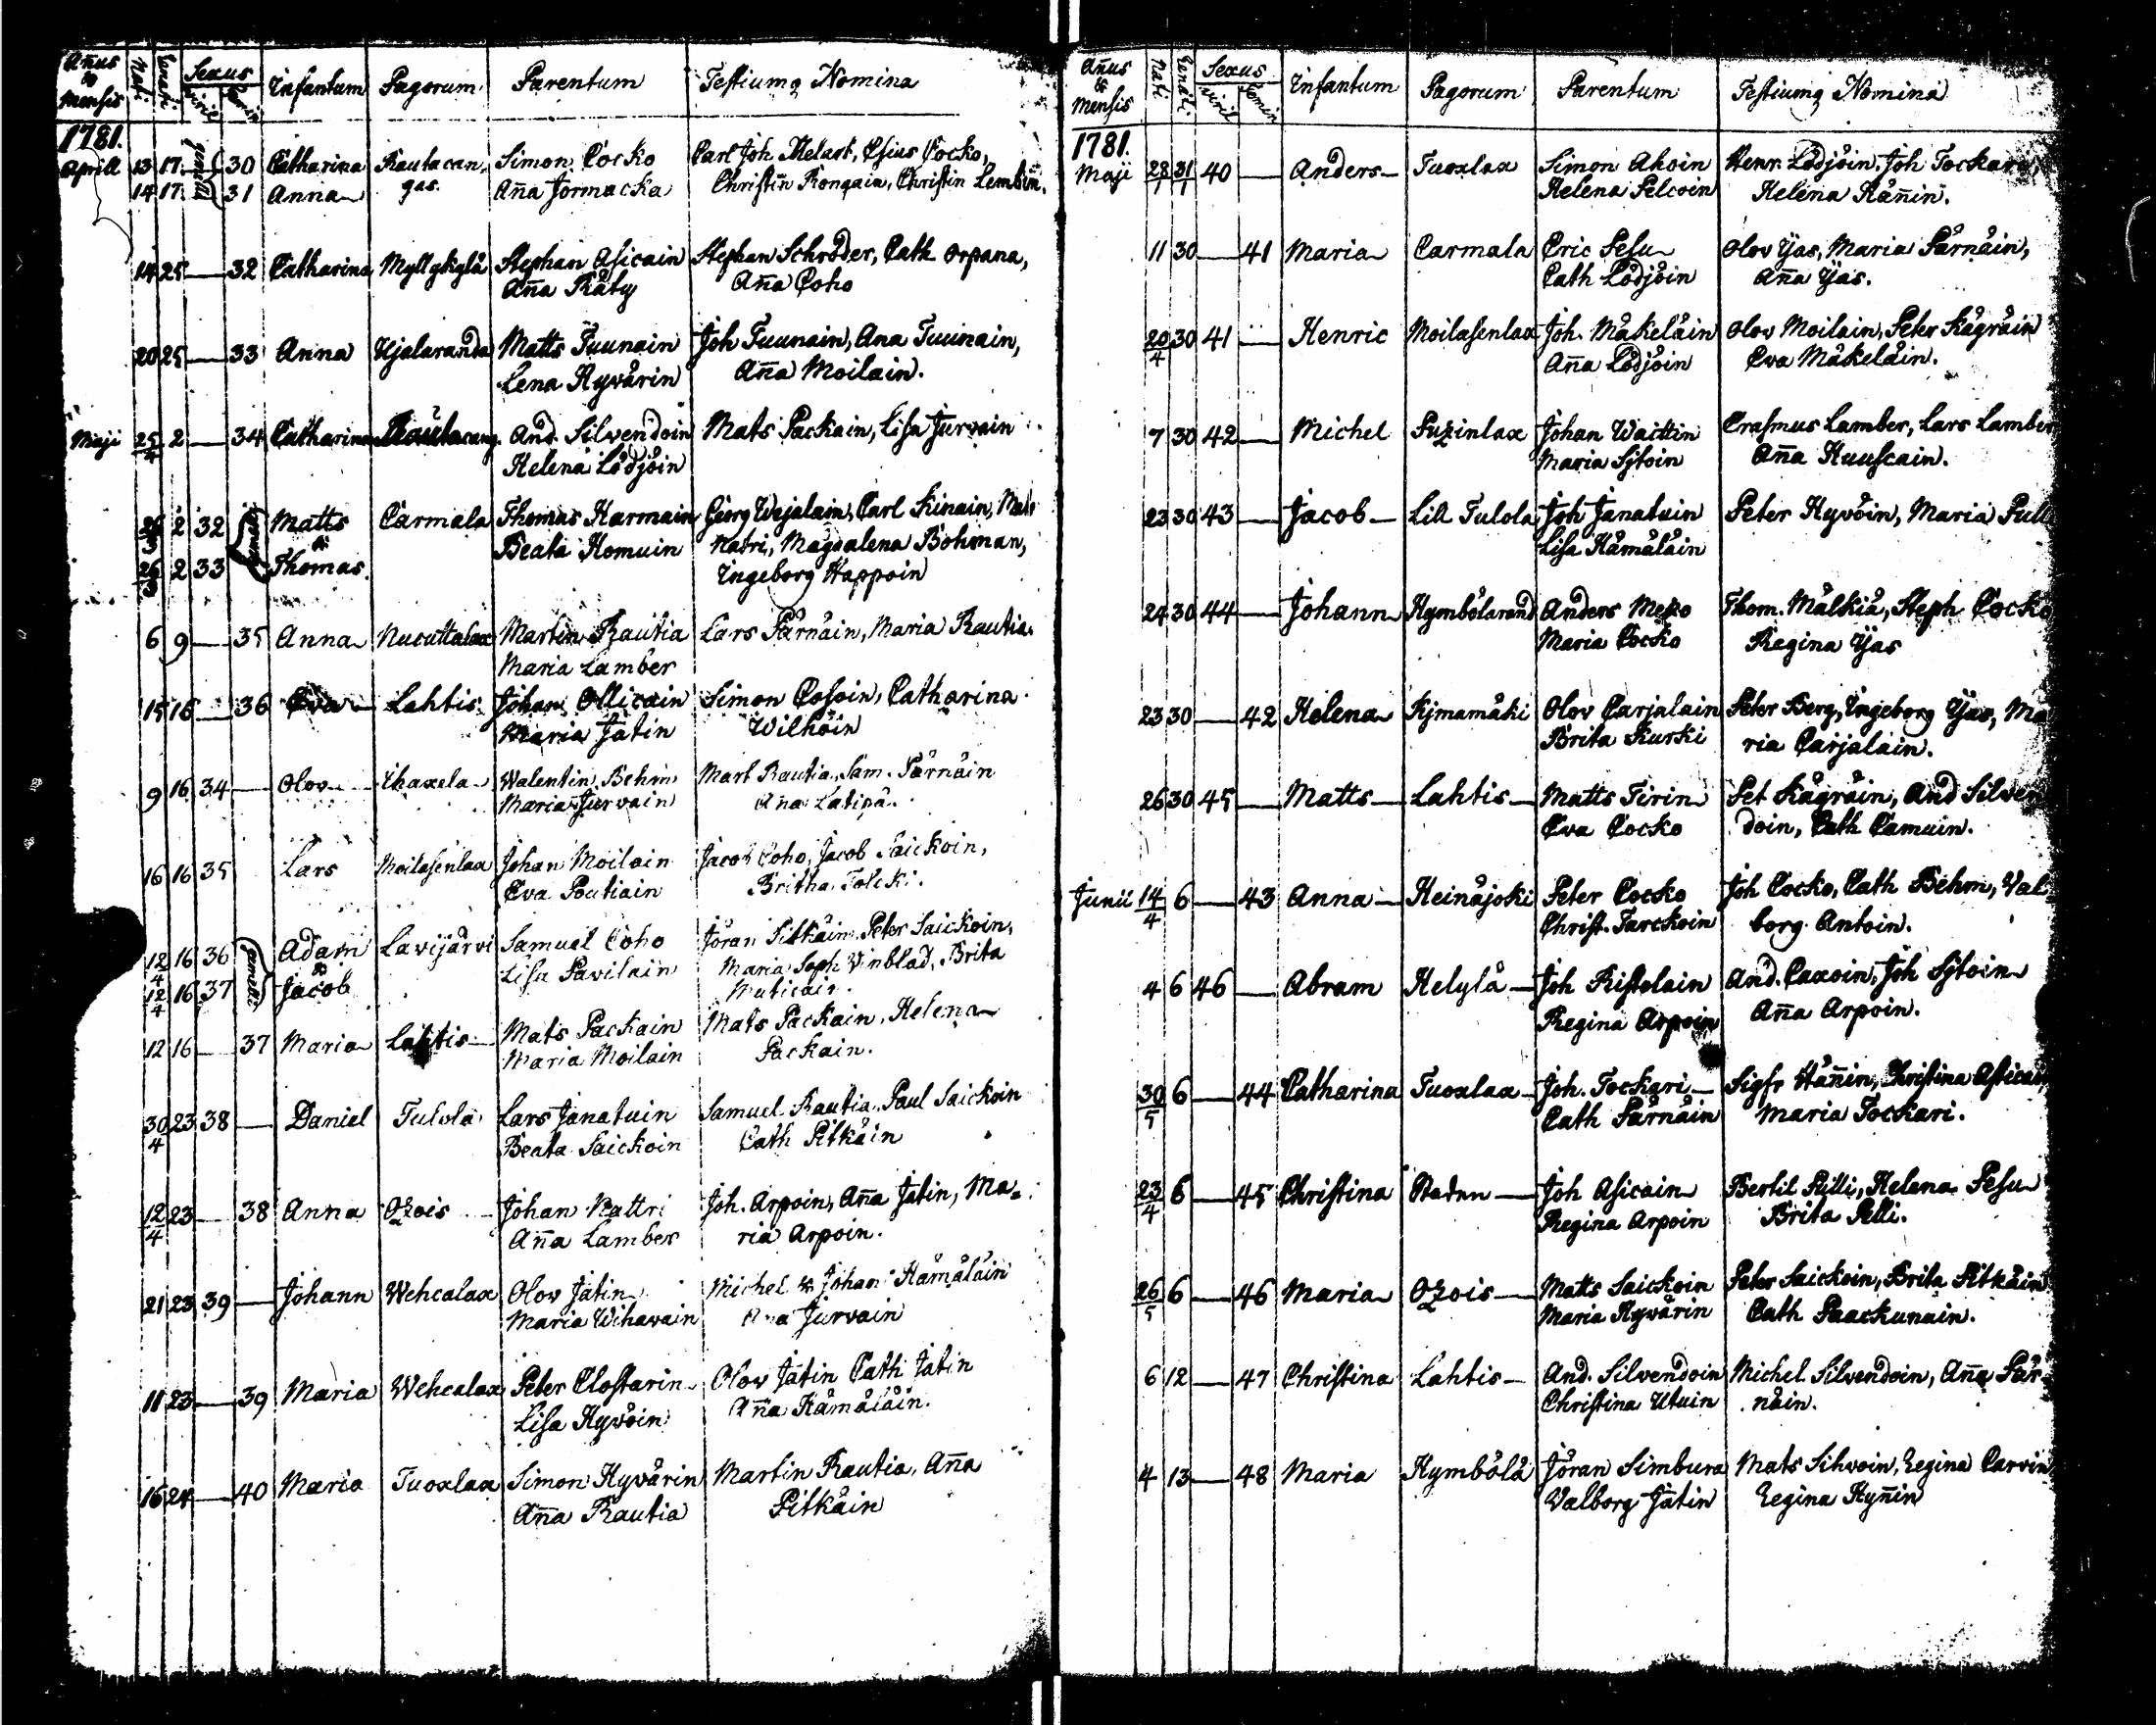 Añus & Mensis Nati Renati Sexus Viril Femin Infantum Pagorum Parentum Testiumq Nomina
1781.
Aprill 13 17 — gemelli 30 Catharina Rautacan, Simon Cocko Carl Joh Melart, Ejus Cocko,
14 17 31 Anna gas. Aña Jormacka Christin Rongain, Christin Lembin.
14 25 — 32 Catharina Myllykylä Stephan Asicain Stephan Schröder, Cath Orpana,
Aña Räty Aña Coho
20 25 — 33 Anna Ujalaranda Matts Tuunain Joh Tuunain, Ana Tuunain,
Lena Hyvärin Aña Moilain.
Maji 25/4 2 — 34 Catharina Rautacang. And. Silvendoin Mats Packain, Lisa Jurvain
Helena Lödjöin
26/3 2 32 gemelli Matts Carmala Thomas Harmain Georg Wejalain, Carl Kinain, Mats
& Beata Homuin Natri, Magdalena Bohman,
26/3 2 33 Thomas. Ingeborg Happoin
6 9 — 35 Anna Nucuttalax Martin Rautia Lars Pärnäin, Maria Rautia
Maria Lamber
15 16 — 36 Eva Lahtis Johan Ollicain Simon Cosoin, Catharina
Maria Jatin Wilhoin
9 16 34 — Olov Ihaxela Walentin Behm Mart Rautia, Sam. Pärnäin
Maria Jurvain Ana Latipä.
16 16 35 Lars Moilasenlax Johan Moilain Jacob Coho, Jacob Saickoin,
Eva Poutiain Britha Tolcki.
12/4 16 36 gemelli Adam Lavijärvi Samuel Coho Jöran Pitkäin, Peter Saickoin,
& Lisa Pavilain Maria Soph Vinblad, Brita
12/4 16 37 Jacob Maticain.
12 16 — 37 Maria Lahtis Mats Packain Mats Packain, Helena
Maria Moilain Packain.
30/4 23 38 — Daniel Tulola Lars Janatuin Samuel Rautia, Paul Saickoin
Beata Saickoin Cath Pitkäin
12/4 23 — 38 Anna Ozois Johan Nattri Joh. Arpoin, Aña Jatin, Ma=
Aña Lamber ria Arpoin.
21 23 39 — Johann Wehcalax Olov Jatin Michel & Johan Hämäläin
Maria Wihavain Ana Jurvain
11 23 — 39 Maria Wehcalax Peter Clostarin Olov Jatin Cath Jatin
Lisa Hyvöin Aña Hämäläin.
16 24 — 40 Maria Tuoxlax Simon Hyvärin Martin Rautia, Aña
Aña Rautia Pitkäin
Añus & Mensis Nati Renati Sexus Viril Femin Infantum Pagorum Parentum Testiumq Nomina
1781.
Maji 28/1 31/1 40 — Anders Tuoxlax Simon Ahoin Henr. Lödjöin, Joh Tockari,
Helena Pelcoin Helena Häñin.
11 30 — 41 Maria Carmala Eric Pesu Olov Yäs, Maria Pärnäin,
Cath Lödjöin Aña Yäs.
20/4 30 41 — Henric Moilasenlax Joh. Mäkeläin Olov Moilain, Peter Kägräin
Aña Lödjöin Eva Mäkeläin.
7 30 42 — Michel Puzinlax Johan Waittin Erasmus Lamber, Lars Lamber
Maria Sjtoin Aña Huuscain.
23 30 43 — Jacob Lill Tulola Joh Janatuin Peter Hyvöin, Maria Pull
Lisa Hämäläin
24 30 44 — Johann Hymbölärand Anders Mero Thom. Mälkiä, Steph Cocko
Maria Cocko Regina Yäs
23 30 — 42 Helena Kjmamäki Olov Carjalain Peter Berg, Ingeborg Yäs, Ma
Brita Kurki ria Carjalain.
26 30 45 — Matts Lahtis Matts Tirin Pet Kägräin, And Silven
Eva Cocko doin, Cath Camuin.
Junii 14/4 6 — 43 Anna Heinäjoki Peter Cocko Joh Cocko, Cath Behm, Val=
Christ. Tarckoin borg Antoin.
4 6 46 — Abram Helylä Joh Ristolain And. Caxoin, Joh Sjtoin
Regina Arpoin Aña Arpoin.
30/5 6 — 44 Catharina Tuoxlax Joh. Tockari Sigfr Häñin, Christina Asicain,
Cath Pärnäin Maria Tockari.
23/4 6 — 45 Christina Staden Joh Asicain Bertil Pulli, Helena Pesu
Regina Arpoin Brita Pelli.
26/5 6 — 46 Maria Ozois Matts Saickoin Peter Saickoin, Brita Pitkäin
Maria Hyvärin Cath Paackunain.
6 12 — 47 Christina Lahtis And. Silvendoin Michel Silvendoin, Aña Pär=
Christina Utuin näin.
4 13 — 48 Maria Hymbölä Jöran Simbura Mats Sihvoin, Regina Carvin
Valborg Jätin Regina Hyñin